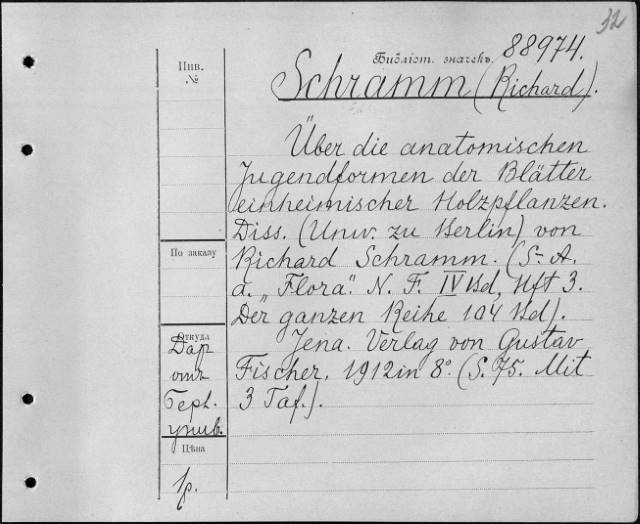 32
Инв.
№
Библіот. значекъ 88974.
Schramm (Richard).
Über die anatomischen
Jugendformen der Blätter
einheimischer Holzpflanzen.
Diss. (Univ. zu Berlin) von
По заказу
Richard Schramm. (S.-A.
a. „Flora". N. F. IV Bd, Hft 3.
Der ganzen Reihe 104 Bd).
Откуда
Дар
отъ
Берл.
унив.
Jena. Verlag von Gustav
Fischer, 1912 in 8°. (S. 75. Mit
3 Taf.).
Цѣна
1р.